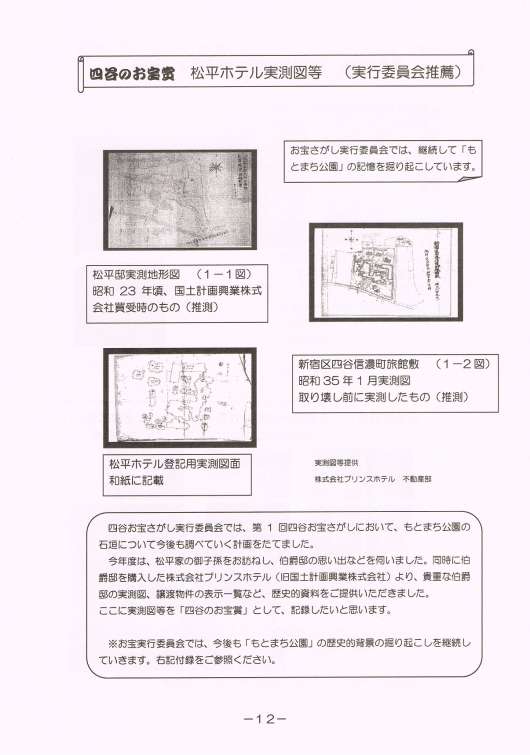 四谷のお宝賞　松平ホテル実測図等　（実行委員会推薦）
お宝さがし実行委員会では、継続して「も
とまち公園」の記憶を掘り起こしています。
松平邸実測地形図　（１－１図）
昭和 23 年頃、国土計画興業株式
会社買受時のもの（推測）
新宿区四谷信濃町旅館敷　（１－２図）
昭和 35 年 1 月実測図
取り壊し前に実測したもの（推測）
松平ホテル登記用実測図面
和紙に記載
実測図等提供
株式会社プリンスホテル　不動産部
四谷お宝さがし実行委員会では、第 1 回四谷お宝さがしにおいて、もとまち公園の
石垣について今後も調べていく計画をたてました。
今年度は、松平家の御子孫をお訪ねし、伯爵邸の思い出などを伺いました。同時に伯
爵邸を購入した株式会社プリンスホテル（旧国土計画興業株式会社）より、貴重な伯爵
邸の実測図、譲渡物件の表示一覧など、歴史的資料をご提供いただきました。
ここに実測図等を「四谷のお宝賞」として、記録したいと思います。
※お宝実行委員会では、今後も「もとまち公園」の歴史的背景の掘り起こしを継続し
ていきます。右記付録をご参照ください。
－１２－